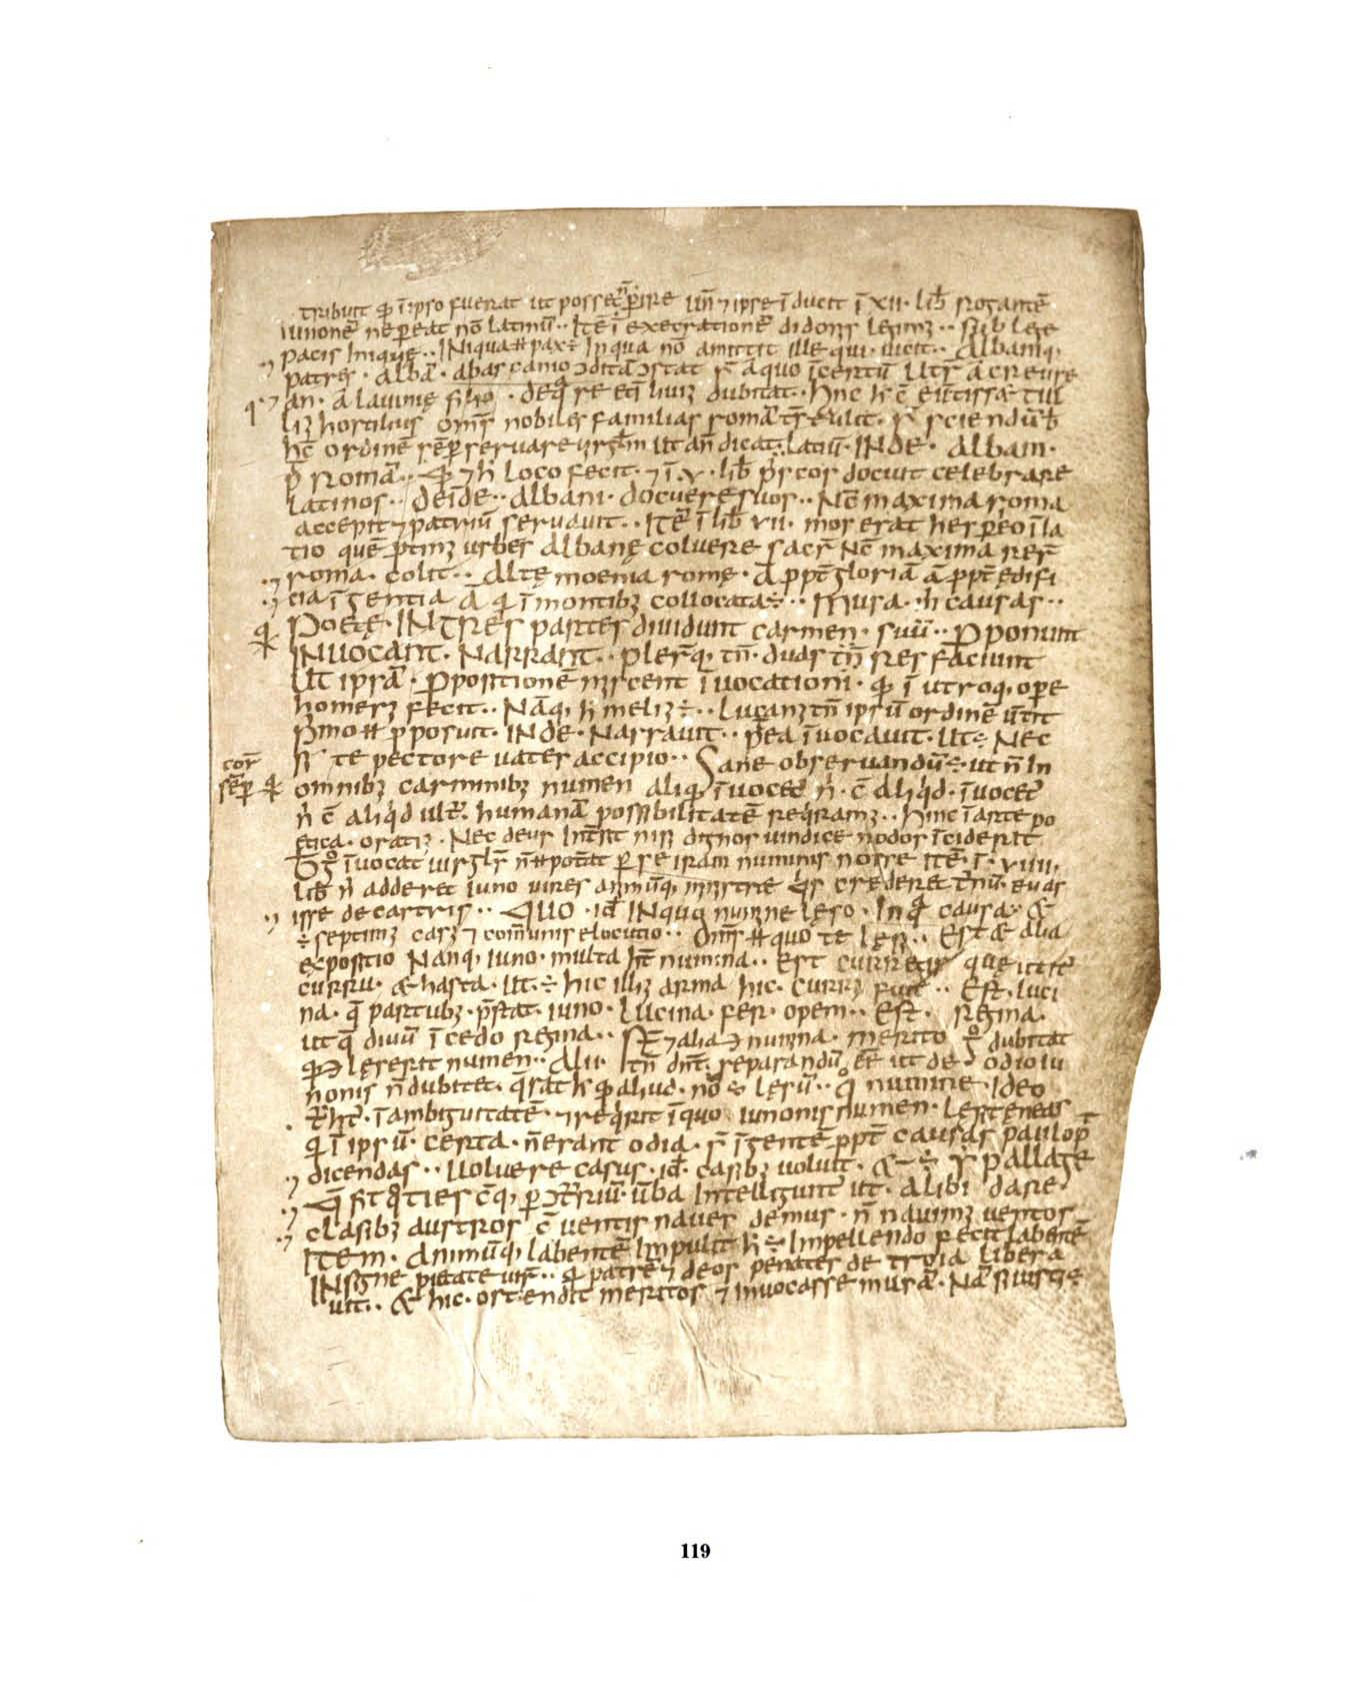 tribuit qđ ī ipso fuerat ut posset ñ ꝑire uñ ⁊ ipse īducit ī xii · lib̄ rogantē
iunonē ne ꝑeat nō latinū ·· Itē ī execrationē didonis legim; ·· sub lege
pacis iniquę ·· INiqua ħ pax ÷ In qua nō amittit ille qui · uicit ·· Albaniq,
patres · albā · abascanio ɔditā ɔstat s; a quo īcertū utr̄ a creusę
an · a lauinię filio · de q̊ re etī liuius dubitat · hanc h c̄ euertisset tul
lius hostilius oms̄ nobiles familias romā trstulit · s; sciendū
hc̄ ordinē sēꝑ seruare uirgłm ut añ dicat · latiū · INde · Albani ·
p̄ Romā · qđ ⁊ h̄ loco fecit · ⁊ ī · v · lib̄ p̄scos docuit celebrare
latinos ·· deīde ·· Albani · docuere suos ·· Nc̄ maxima roma
accepit ⁊ patriū seruauit ·· Itē ī lib̄ vii · mos erat hesꝑeo ī la
tio quē ꝓtin; urbes albanę coluere sacr̄ Nc̄ maxima rer̄
roma · colit ·· Altę moenia romę · ā ꝓpt̄ gloriā ā ꝓpt̄ edifi
cia īgentia ā qđ ī montib; collocata ÷ ·· Musa · ħ causas ··
Poetę · INTRes partes diuidunt carmen · suū ·· Pponunt
INuocant · NARRant ·· pleriq, tñ · duas tñ res faciunt
Ut ipsā · Ppositionē miscent īuocationi · qđ ī utroq, opere
homerus fecit ·· Nāq, h melius ÷ ·· Lucanus tñ ipsū ordinē ūtit
Pimo ħ ꝓposuit · INde · Narrauit ·· p̄ea īuocauit · Ut ÷ Nec
si te pectore uates accipio ·· Sane obseruandū ÷ · ut ñ In
cor̄
sēꝑ
omnib; carminib; numen aliqđ īuocet̄ ñ · c̄ Aliqđ · īuocet̄
ñ c̄ aliqđ ult̄ · humanā possibilitatē req̊ram; ·· hinc ī arte po
etica · oratius · Nec deus intersit nisi dignos uindice nodos īciderit
īuocat uirgłs ñ ħ poterat ꝑ se iram numinis nosse itē ī · viiii ·
lib̄ ñ adderet iuno uires animūq, ministret q̊s crederet t̄nū · euas
isse de castris ·· QUO · id INquo numine lęso · In q̊ causa ·
÷ septimus casus ⁊ comūnis elocutio ·· Oms̄ ħ quo te lęsi ·· Est & alia
expositio Nanq, iuno · multa ht̄ numina ·· Est curretis quę utit̄
curru · & hasta · Ut · ÷ hic illius arma hic · currus fuit ·· Est · luci
na · q̄ partub; · p̄stat · iuno · lucina · fer · opem ·· Est · regina ·
ut q̄ diuū ī cedo regina ·· Sт ⁊ alia ei numina · merito g̊ dubitat
qđ ei lęserit numen ·· Alii · tñ dnt̄ · separandū eē ut de odio iu
nonis ñ dubitet · q̄rat h qđ aliud · nō lęsū ·· q̊ numine · Ideo
· ī ambiguitatē · ⁊ req̊rit ī quo iunonis numen · lęsit eneas
qđ ī ipsū · certa · ñ erant odia · s; ī gentē ꝓpt̄ causas paulop̄
dicendas ·· Uoluere casus · id casib; uolui · & ÷ ypallage
q̄ fit q̊ties cūq, ꝑ ɔt̄riū · ūba Intelligunt̄ ut · Alibi dare ·
clasib; austros c̄ uentis naues demus · ñ nauim; uentos
Item · Animūq, labentē Impulit h ÷ Impellendo fecit labentē
INsigne pietate uir̄ ·· qđ patrē ⁊ deos penates de troia libera
uit ·· & hic · ostendit meritos ⁊ inuocasse musā · Nā si iustę
119